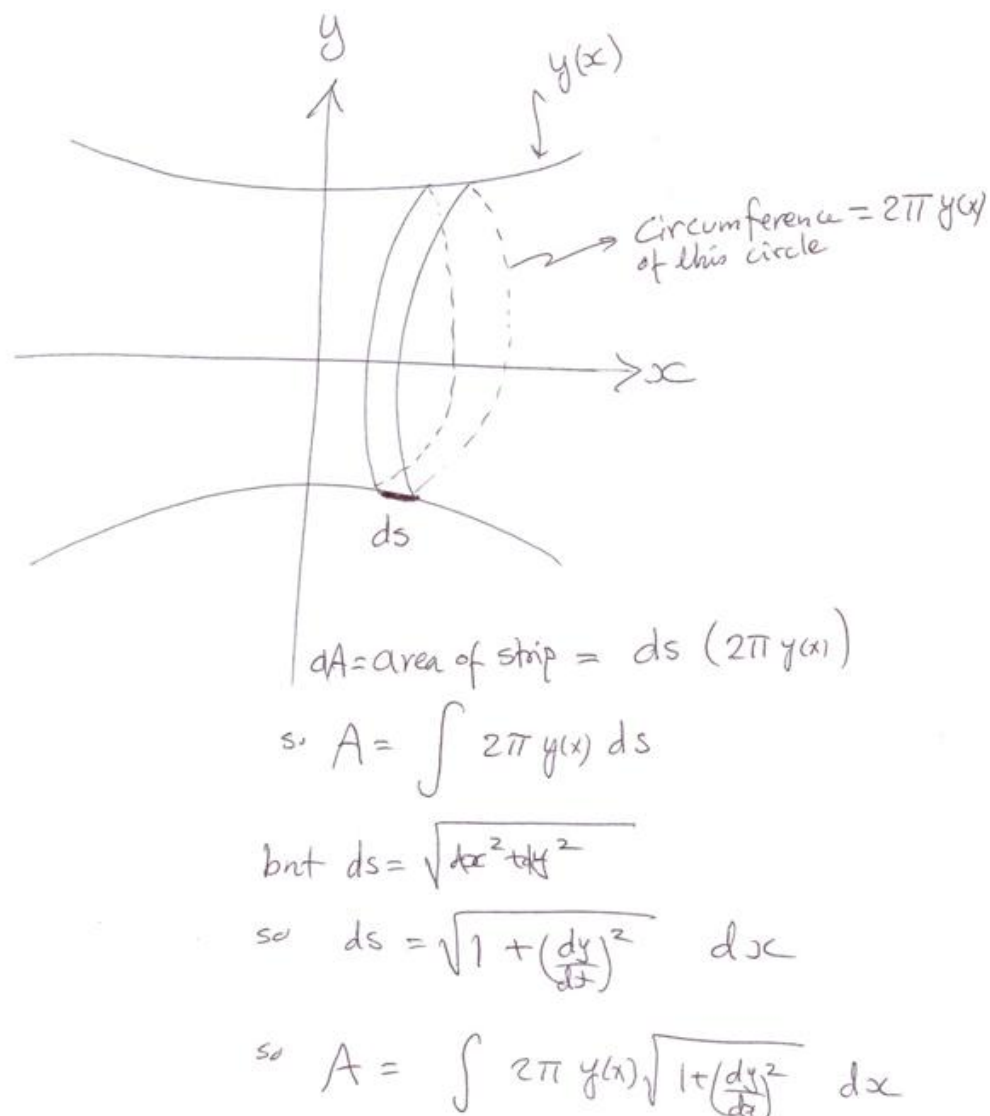 y
y(x)
Circumference = 2π y(x)
of this circle
x
ds
dA = area of strip = ds (2π y(x))
so A = ∫ 2π y(x) ds
but ds = √(dx² + dy²)
so ds = √(1 + (dy/dx)²) dx
so A = ∫ 2π y(x) √(1 + (dy/dx)²) dx